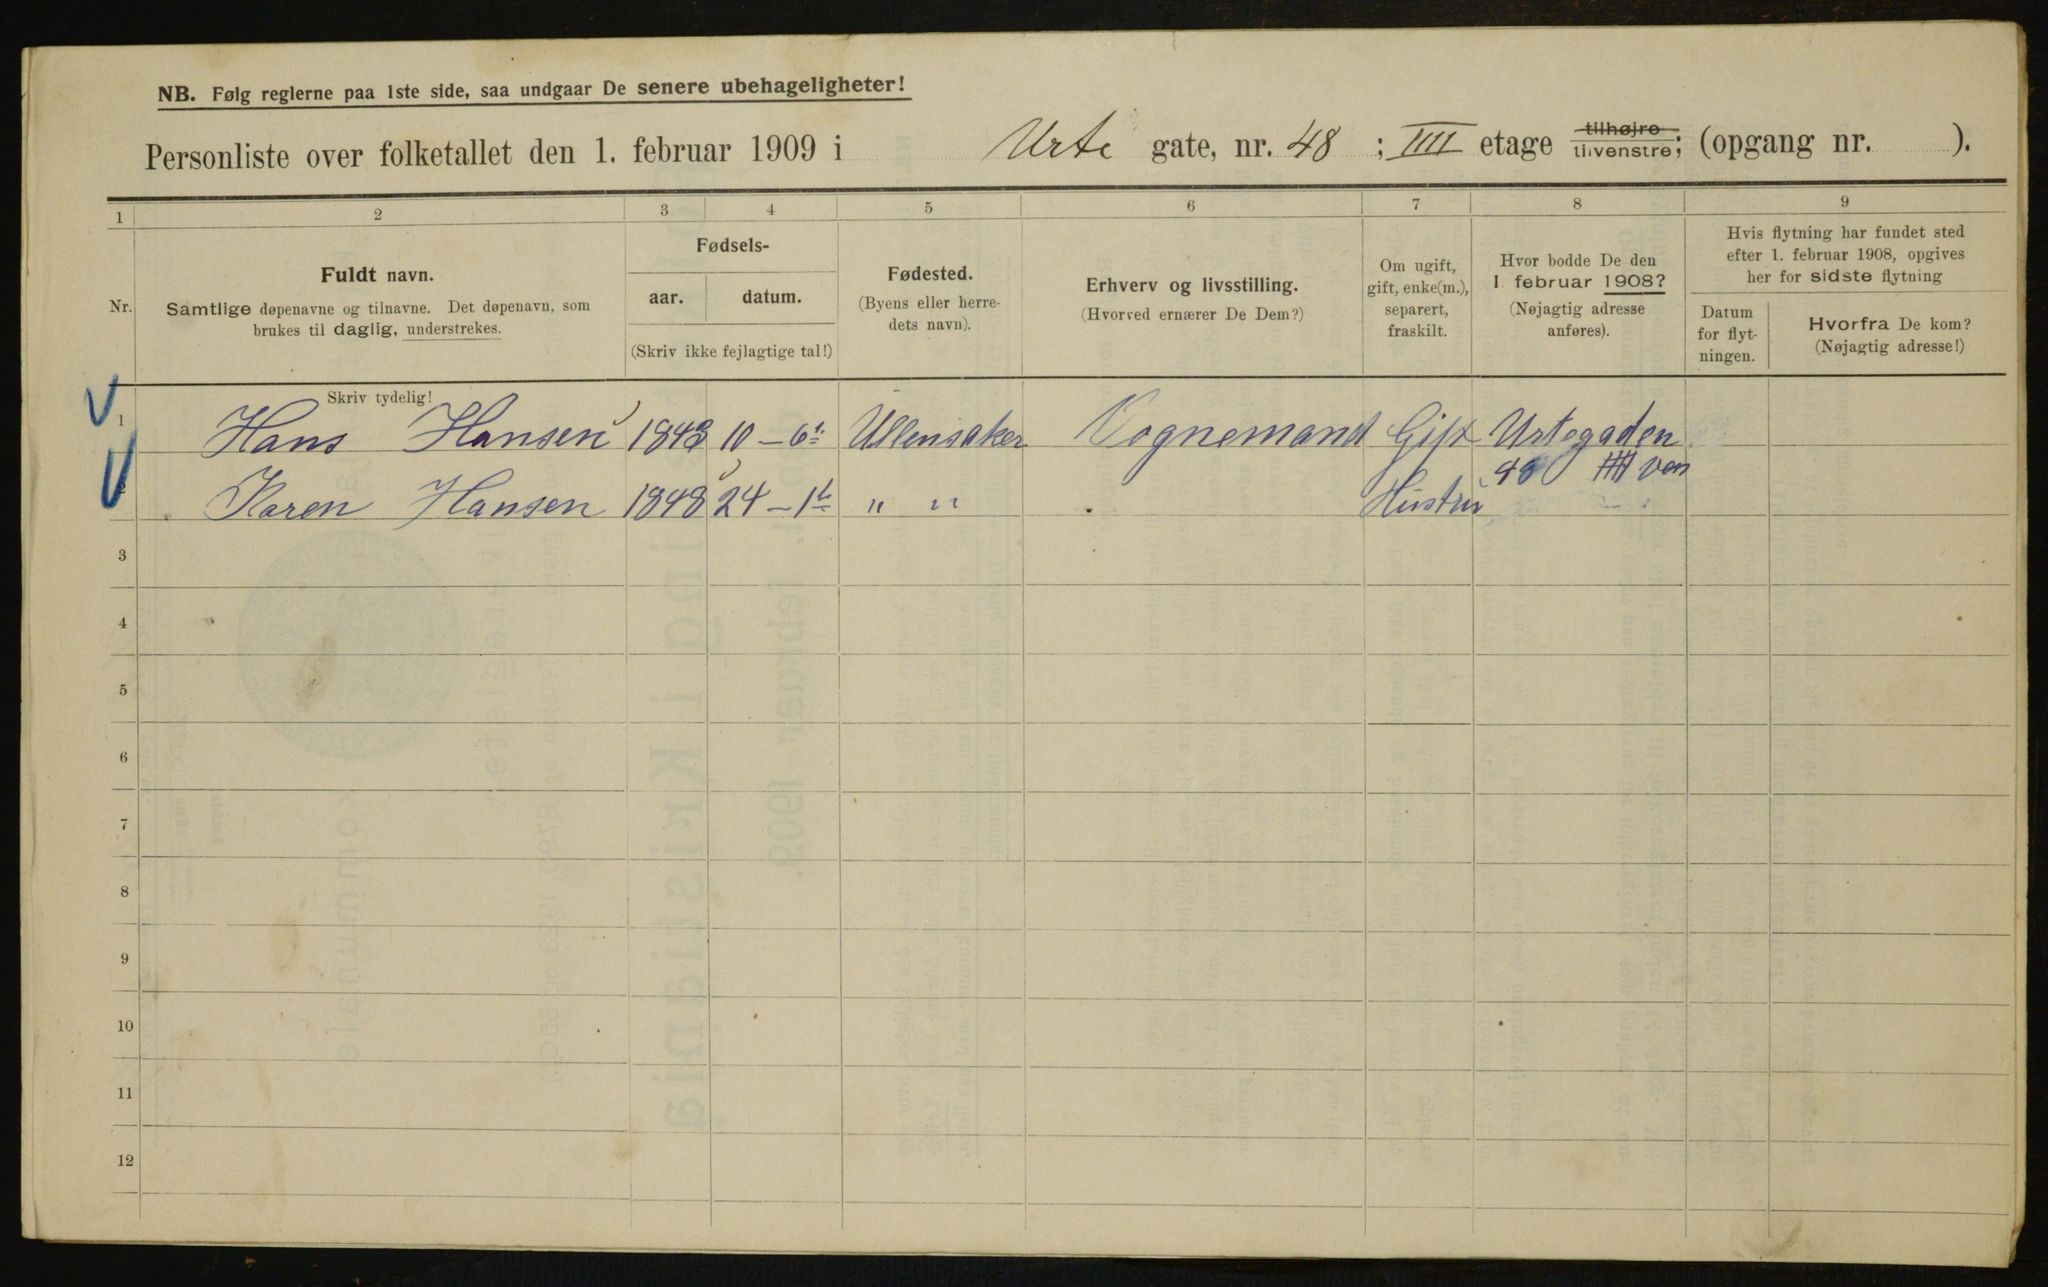 NB. Følg reglerne paa 1ste side, saa undgaar De senere ubehageligheter!
Personliste over folketallet den 1. februar 1909 i Urte gate, nr. 48 ; IIII etage tilhøjre tilvenstre; (opgang nr. ).
1 2 3 4 5 6 7 8 9
Nr.
Fuldt navn.
Samtlige døpenavne og tilnavne. Det døpenavn, som
brukes til daglig, understrekes.
Fødsels-
aar. datum.
(Skriv ikke fejlagtige tal!)
Fødested.
(Byens eller herre-
dets navn).
Erhverv og livsstilling.
(Hvorved ernærer De Dem?)
Om ugift,
gift, enke(m.),
separert,
fraskilt.
Hvor bodde De den
1. februar 1908?
(Nøjagtig adresse
anføres).
Hvis flytning har fundet sted
efter 1. februar 1908, opgives
her for sidste flytning
Datum
for flyt-
ningen.
Hvorfra De kom?
(Nøjagtig adresse!)
Skriv tydelig!
1 Hans Hansen 1843 10 – 6 Ullensaker Vognemand Gift Urtegaden
48 IIII ven
2 Karen Hansen 1848 24 – 1 " " Hustru
3
4
5
6
7
8
9
10
11
12